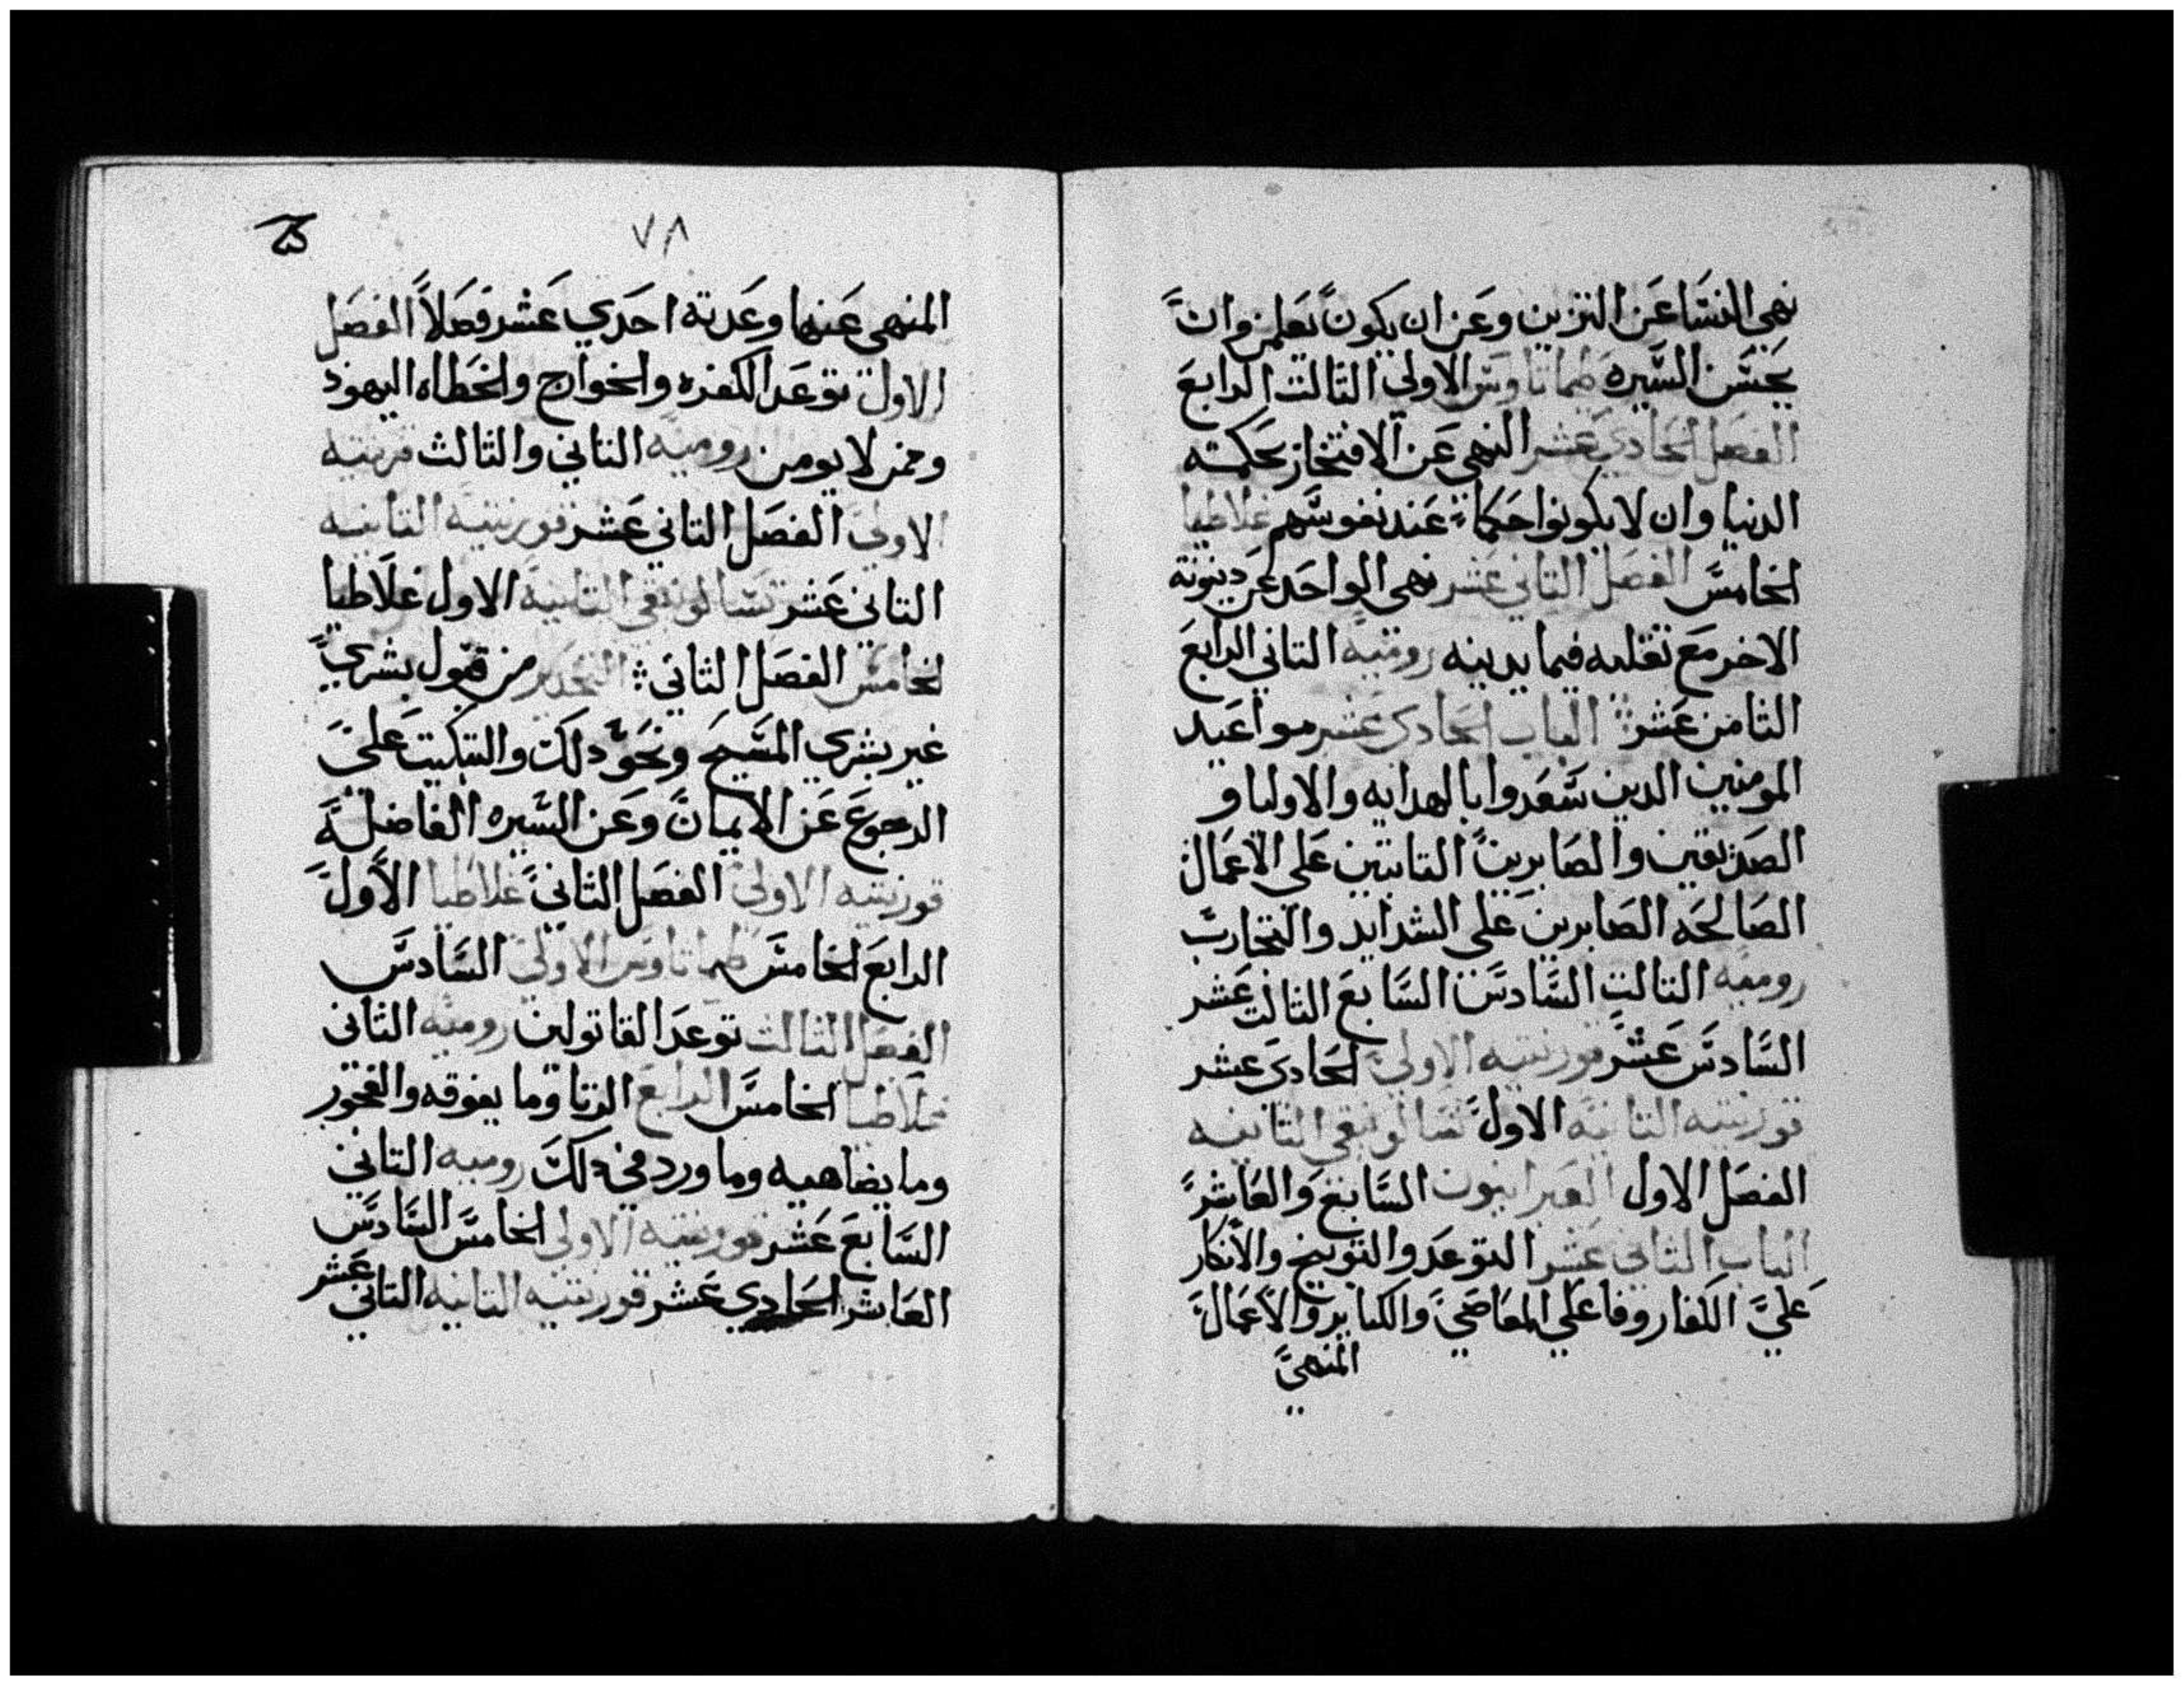 نهي النسا عن التزين وعن ان يكون يعلمن وان
بحسن السيره طماتاوس الاولي الثالث الرابع
الفصل الحادي عشر النهي عن الافتخار بحكمته
الدنيا وان لا يكونوا حكماء عند نفوسهم غلاطيا
الخامس الفصل الثاني عشر نهي الواحد عن دينونة
الاخر مع تقلبه فيما يدينه روميه الثاني الرابع
الثامن عشر الباب الحادي عشر مواعيد
المومنين الدين سعدوا بالهدايه والاوليا و
الصديقين والصابرين الثابتين علي الاعمال
الصالحه الصابرين علي الشدايد والتجارب
روميه الثالث السادس السابع الثالث عشر
السادس عشر قورنتيه الاولي الحادي عشر
قورنتيه الثانيه الاول تسالونيقي الثانيه
الفصل الاول العبرانيون السابع والعاشر
الباب الثاني عشر التوعد والتوبيخ والانكار
علي الكفار وفاعلي المعاصي والكباير والاعمال
المنهي
٧٨
المنهي عنها وعدته احدي عشر فصلاً الفصل
الاول توعد الكفره والخوارج والخطاه اليهود
وممن لا يومن روميه الثاني والثالث قرنتيه
الاولي الفصل الثاني عشر قورنتيه الثانيه
الثاني عشر تسالونيقي الثانية الاول غلاطيا
الخامس الفصل الثاني التحدير من قبول بشري
غير بشري المسيح ونحو دلك والتبكيت علي
الرجوع عن الايمان وعن السيره الفاضلة
قورنتيه الاولي الفصل الثاني غلاطيا الاول
الرابع الخامس طماتاوس الاولي السادس
الفصل الثالث توعد القاتولين روميه الثاني
غلاطيا الخامس الرابع الزنا وما يفوقه والفجور
وما يضاهيه وما ورد في دلك روميه الثاني
السابع عشر قورنتيه الاولي الخامس السادس
العاشر الحادي عشر قورنتيه الثانيه الثاني عشر